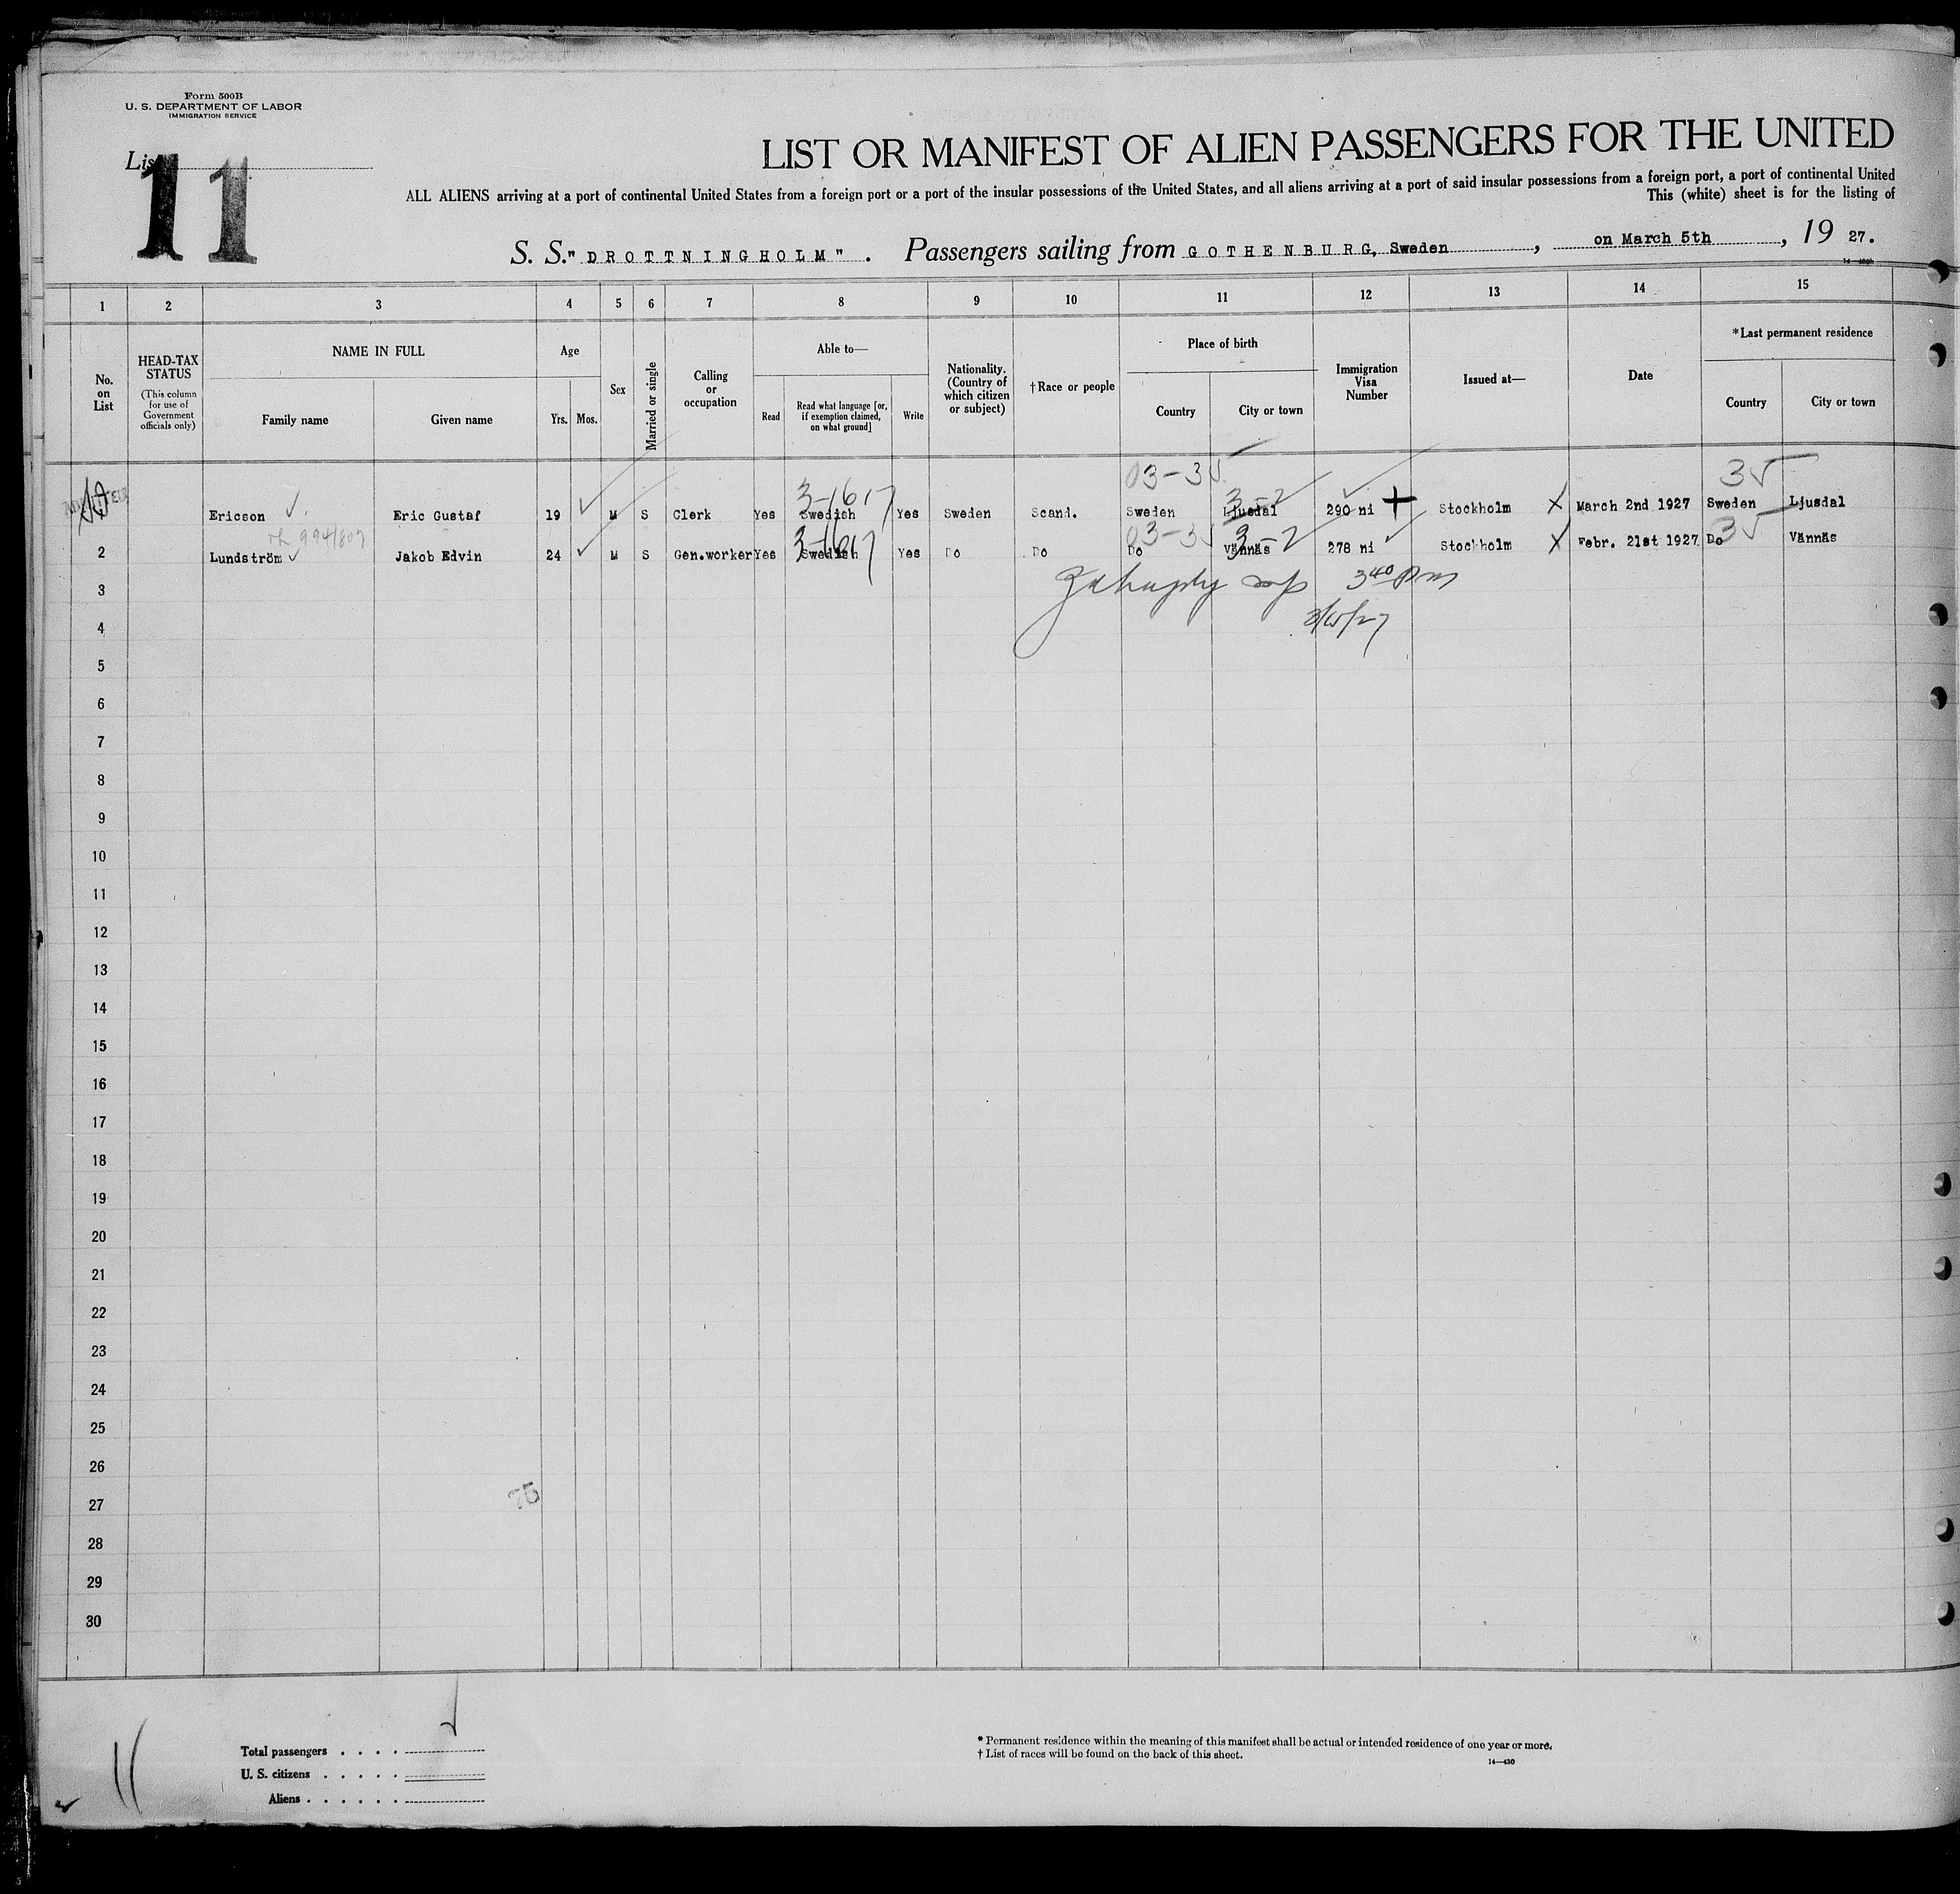 Form 500B
U. S. DEPARTMENT OF LABOR
IMMIGRATION SERVICE
List
11
LIST OR MANIFEST OF ALIEN PASSENGERS FOR THE UNITED
ALL ALIENS arriving at a port of continental United States from a foreign port or a port of the insular possessions of the United States, and all aliens arriving at a port of said insular possessions from a foreign port, a port of continental United
This (white) sheet is for the listing of
S. S. "DROTTNINGHOLM". Passengers sailing from GOTHENBURG, Sweden, on March 5th, 19 27.
1 2 3 4 5 6 7 8 9 10 11 12 13 14 15
No. on List
HEAD-TAX STATUS
(This column for use of Government officials only)
NAME IN FULL
Family name
Given name
Age
Yrs.
Mos.
Sex
Married or single
Calling or occupation
Able to—
Read
Read what language [or, if exemption claimed, on what ground]
Write
Nationality. (Country of which citizen or subject)
†Race or people
Place of birth
Country
City or town
Immigration Visa Number
Issued at—
Date
*Last permanent residence
Country
City or town
03-35
35
3-1617
3-2
Ericson Eric Gustaf 19 M S Clerk Yes Swedish Yes Sweden Scand. Sweden Ljusdal 290 ni Stockholm March 2nd 1927 Sweden Ljusdal
3-1617
03-35
3-2
35
2 Lundström Jakob Edvin 24 M S Gen.worker Yes Swedish Yes Do Do Do Vännäs 278 ni Stockholm Febr. 21st 1927 Do Vännäs
3 40 PM
3
4
5
6
7
8
9
10
11
12
13
14
15
16
17
18
19
20
21
22
23
24
25
26
27
28
29
30
Total passengers
U. S. citizens
Aliens
* Permanent residence within the meaning of this manifest shall be actual or intended residence of one year or more.
† List of races will be found on the back of this sheet.
14—430